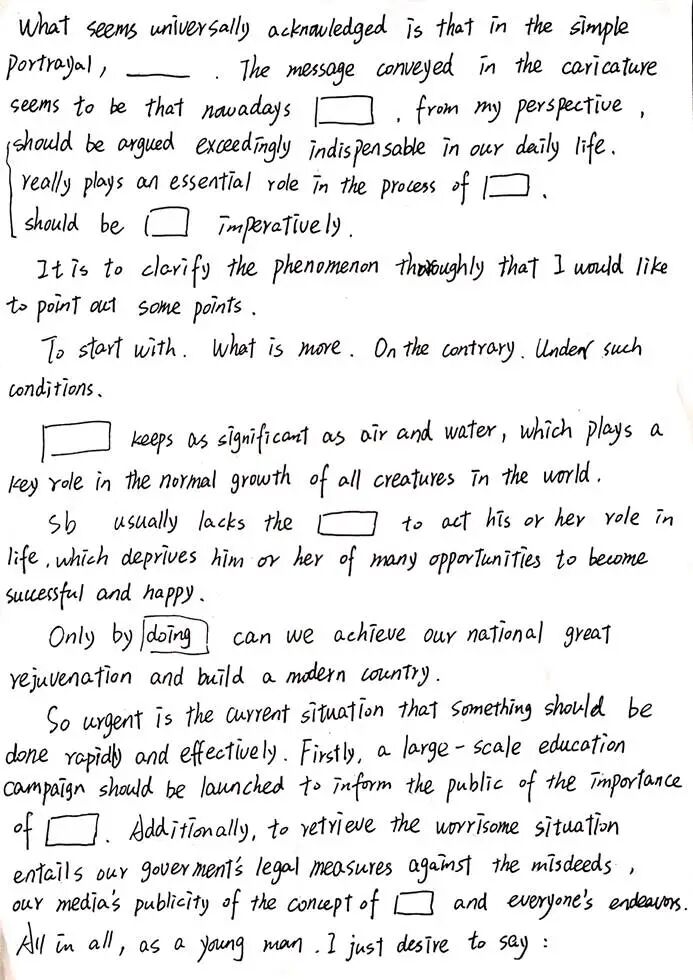 What seems universally acknowledged is that in the simple
portrayal, ____ . The message conveyed in the caricature
seems to be that nowadays □ , from my perspective,
should be argued exceedingly indispensable in our daily life.
really plays an essential role in the process of □ .
should be □ imperatively.
It is to clarify the phenomenon thoroughly that I would like
to point out some points.
To start with. What is more. On the contrary. Under such
conditions.
□ keeps as significant as air and water, which plays a
key role in the normal growth of all creatures in the world.
Sb usually lacks the □ to act his or her role in
life, which deprives him or her of many opportunities to become
successful and happy.
Only by doing can we achieve our national great
rejuvenation and build a modern country.
So urgent is the current situation that something should be
done rapidly and effectively. Firstly, a large-scale education
campaign should be launched to inform the public of the importance
of □ . Additionally, to retrieve the worrisome situation
entails our goverment's legal measures against the misdeeds,
our media's publicity of the concept of □ and everyone's endeavors.
All in all, as a young man. I just desire to say: